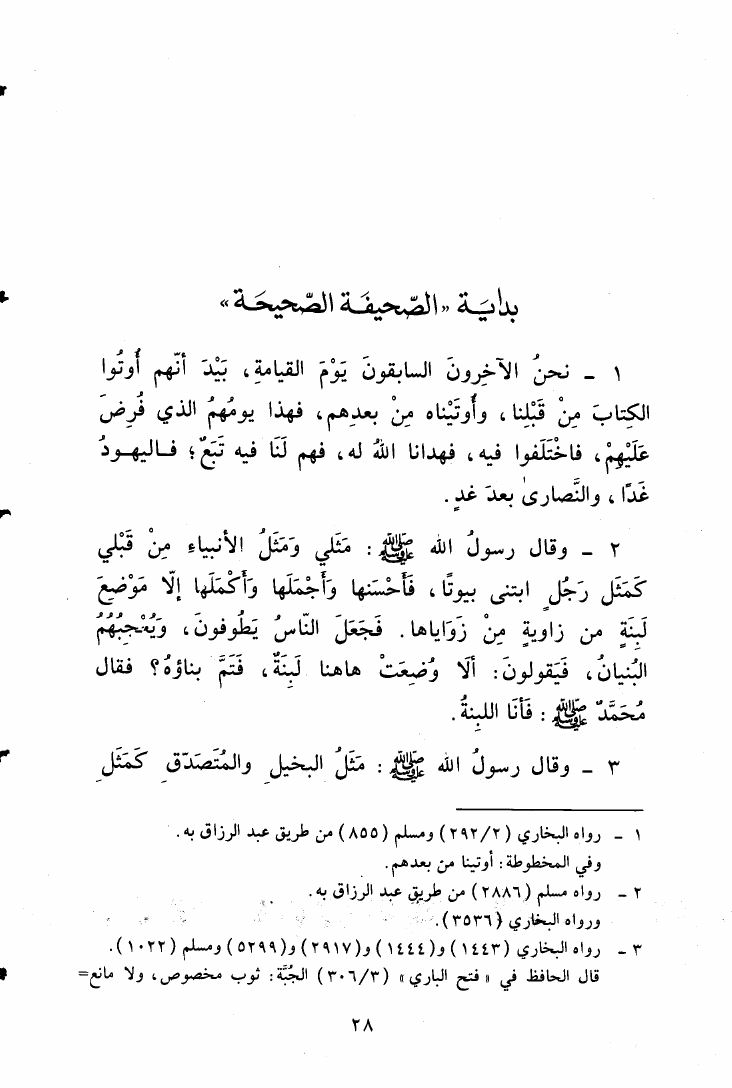 بدايَـة «الصّحيفَـة الصّحيحَـة»
١ ـ نحنُ الآخِرونَ السابقونَ يَوْمَ القيامةِ، بَيْدَ أنّهم أُوتُوا
الكِتابَ مِنْ قَبْلِنا، وأُوتَيْناه مِنْ بعدِهم، فهذا يومُهمُ الذي فُرِضَ
عَلَيْهِمْ، فاخْتَلَفوا فيه، فهدانا اللهُ له، فهم لَنَا فيه تَبَعٌ؛ فـاليهـودُ
غَدًا، والنَّصارىٰ بعدَ غدٍ.
٢ ـ وقال رسولُ الله ﷺ: مَثَلي وَمَثَلُ الأنبياءِ مِنْ قَبْلي
كَمَثَلِ رَجُلٍ ابتنى بيوتًا، فَأَحْسَنها وَأَجْمَلَها وَأَكْمَلَها إلّا مَوْضِعَ
لَبِنَةٍ من زاويةٍ مِنْ زَوَاياها. فَجَعَلَ النّاسُ يَطُوفونَ، وَيُعْجِبُهُمُ
البُنيانُ، فَيَقولونَ: ألَا وُضِعَتْ هاهنا لَبِنَةٌ، فَتَمَّ بناؤهُ؟ فقال
مُحَمَّدٌ ﷺ: فَأَنَا اللبِنةُ.
٣ ـ وقال رسولُ الله ﷺ: مَثَلُ البخيلِ والمُتَصَدّقِ كَمَثَلِ
١ ـ رواه البخاري (٢٩٢/٢) ومسلم (٨٥٥) من طريق عبد الرزاق به.
وفي المخطوطة: أوتينا من بعدهم.
٢ ـ رواه مسلم (٢٨٨٦) من طريق عبد الرزاق به.
ورواه البخاري (٣٥٣٦).
٣ ـ رواه البخاري (١٤٤٣) و(١٤٤٤) و(٢٩١٧) و(٥٢٩٩) ومسلم (١٠٢٢).
قال الحافظ في «فتح الباري» (٣٠٦/٣) الجُبَّة: ثوب مخصوص، ولا مانع=
٢٨